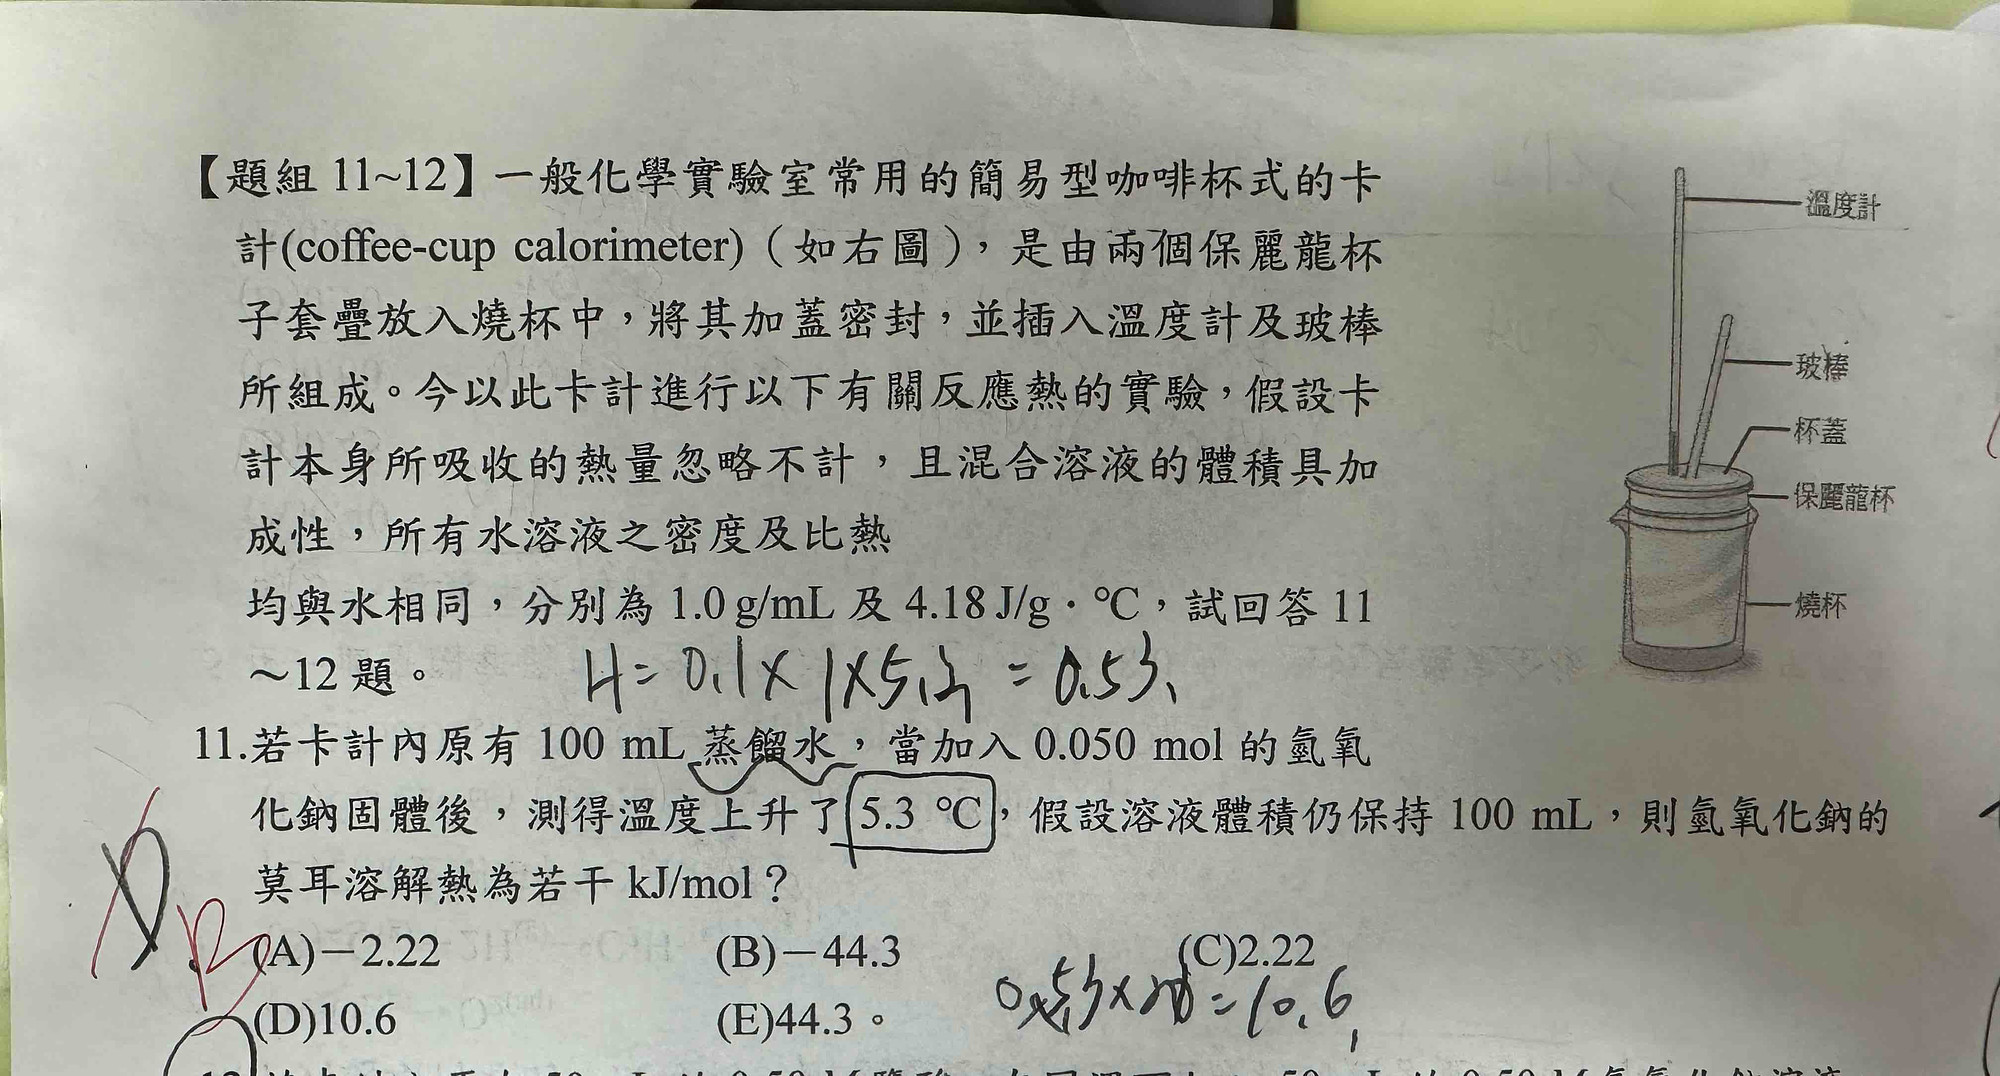 【題組 11~12】一般化學實驗室常用的簡易型咖啡杯式的卡
計(coffee-cup calorimeter)(如右圖),是由兩個保麗龍杯
子套疊放入燒杯中,將其加蓋密封,並插入溫度計及玻棒
所組成。今以此卡計進行以下有關反應熱的實驗,假設卡
計本身所吸收的熱量忽略不計,且混合溶液的體積具加
成性,所有水溶液之密度及比熱
均與水相同,分別為 1.0 g/mL 及 4.18 J/g·℃,試回答 11
~12 題。
溫度計
玻棒
杯蓋
保麗龍杯
燒杯
H = 0.1 × 1 × 5.3 = 0.53
11.若卡計內原有 100 mL 蒸餾水,當加入 0.050 mol 的氫氧
化鈉固體後,測得溫度上升了 5.3 ℃,假設溶液體積仍保持 100 mL,則氫氧化鈉的
莫耳溶解熱為若干 kJ/mol?
B
(A)-2.22 (B)-44.3 (C)2.22
0.53 × 20 = 10.6
(D)10.6 (E)44.3。